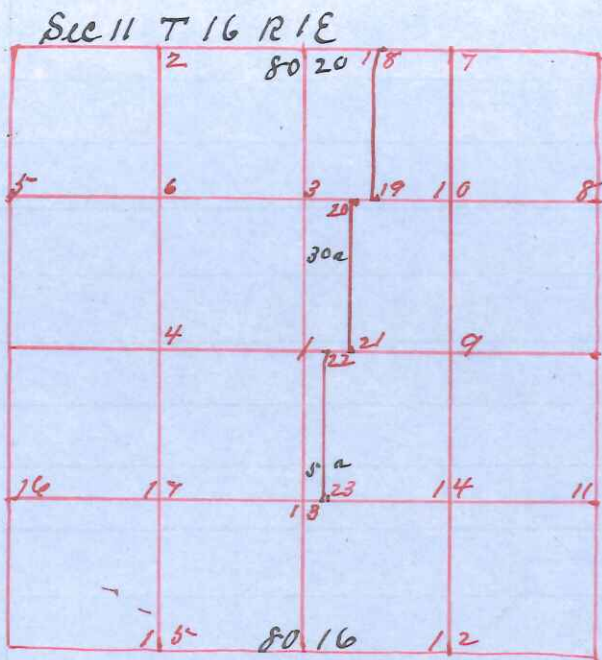 Sec 11 T 16 R 1E
2 80 20 18 7
5 6 3 19 10 8
20
30a
4 1 21 9
22
5 a
16 17 23 14 11
13
15 80 16 12